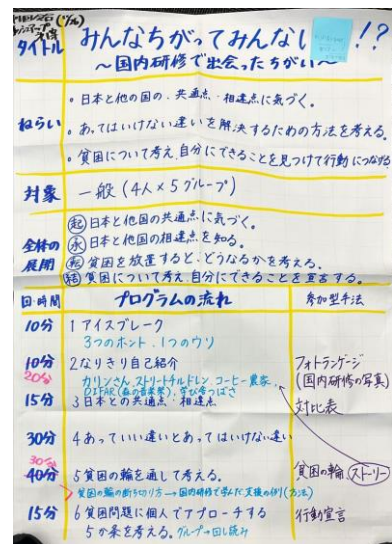 タイトル
みんなちがってみんない !?
～国内研修で出会ったちがい～
ねらい
・日本と他の国の、共通点・相違点に気づく。
・あってはいけない違いを解決するための方法を考える。
・貧困について考え、自分にできることを見つけて行動につなげる
対象
一般（4人×5グループ）
全体の展開
起 日本と他国の共通点に気づく。
承 日本と他国の相違点を知る。
転 貧困を放置すると、どうなるかを考える。
結 貧困について考え、自分にできることを宣言する。
回・時間 プログラムの流れ 参加型手法
10分 1 アイスブレーク
3つのホント、1つのウソ
10分 2 なりきり自己紹介 フォトランゲージ
20分 カリンさん、ストリートチルドレン、コーヒー農家、 (国内研修の写真)
DIFAR
15分 3 日本との共通点・相違点 対比表
30分 4 あっていい違いとあってはいけない違い
30分
40分 5 貧困の輪を通して考える。 貧困の輪 ストーリー
貧困の輪の断ち切り方→国内研修で学んだ支援の例(方法)
15分 6 貧困問題に個人でアプローチする 行動宣言
5か条を考える。グループ→回し読み